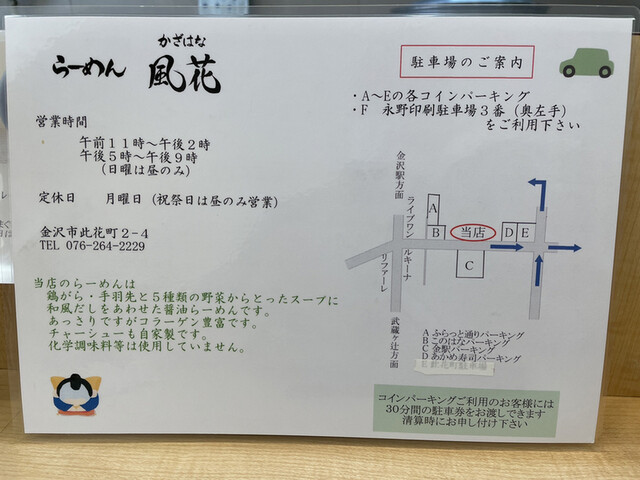 かざはな
らーめん 風花
営業時間
午前11時〜午後2時
午後5時〜午後9時
(日曜は昼のみ)
定休日 月曜日(祝祭日は昼のみ営業)
金沢市此花町2-4
TEL 076-264-2229
当店のらーめんは
鶏がら・手羽先と5種類の野菜からとったスープに
和風だしをあわせた醤油らーめんです。
あっさりですがコラーゲン豊富です。
チャーシューも自家製です。
化学調味料等は使用していません。
駐車場のご案内
・A〜Eの各コインパーキング
・F 永野印刷駐車場3番(奥左手)
をご利用下さい
金沢駅方面
ライブワン
ルキーナ
リファーレ
武蔵ヶ辻方面
A
B
当店
C
D
E
A ふらっと通りパーキング
B このはなパーキング
C 金駅パーキング
D あかめ寿司パーキング
E 此花町駐車場
コインパーキングご利用のお客様には
30分間の駐車券をお渡しできます
清算時にお申し付け下さい